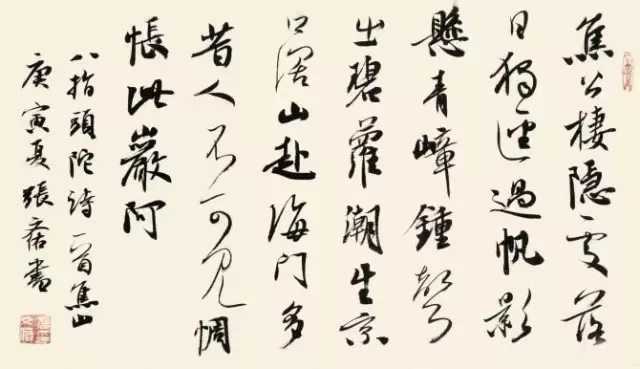 焦公棲隱處落
日獨經過帆影
懸青嶂鍾聲
出碧蘿潮生京
口闊山赴海門多
昔人不可見惆
悵此巖阿
八指頭陀詩一首焦山
庚寅夏張書